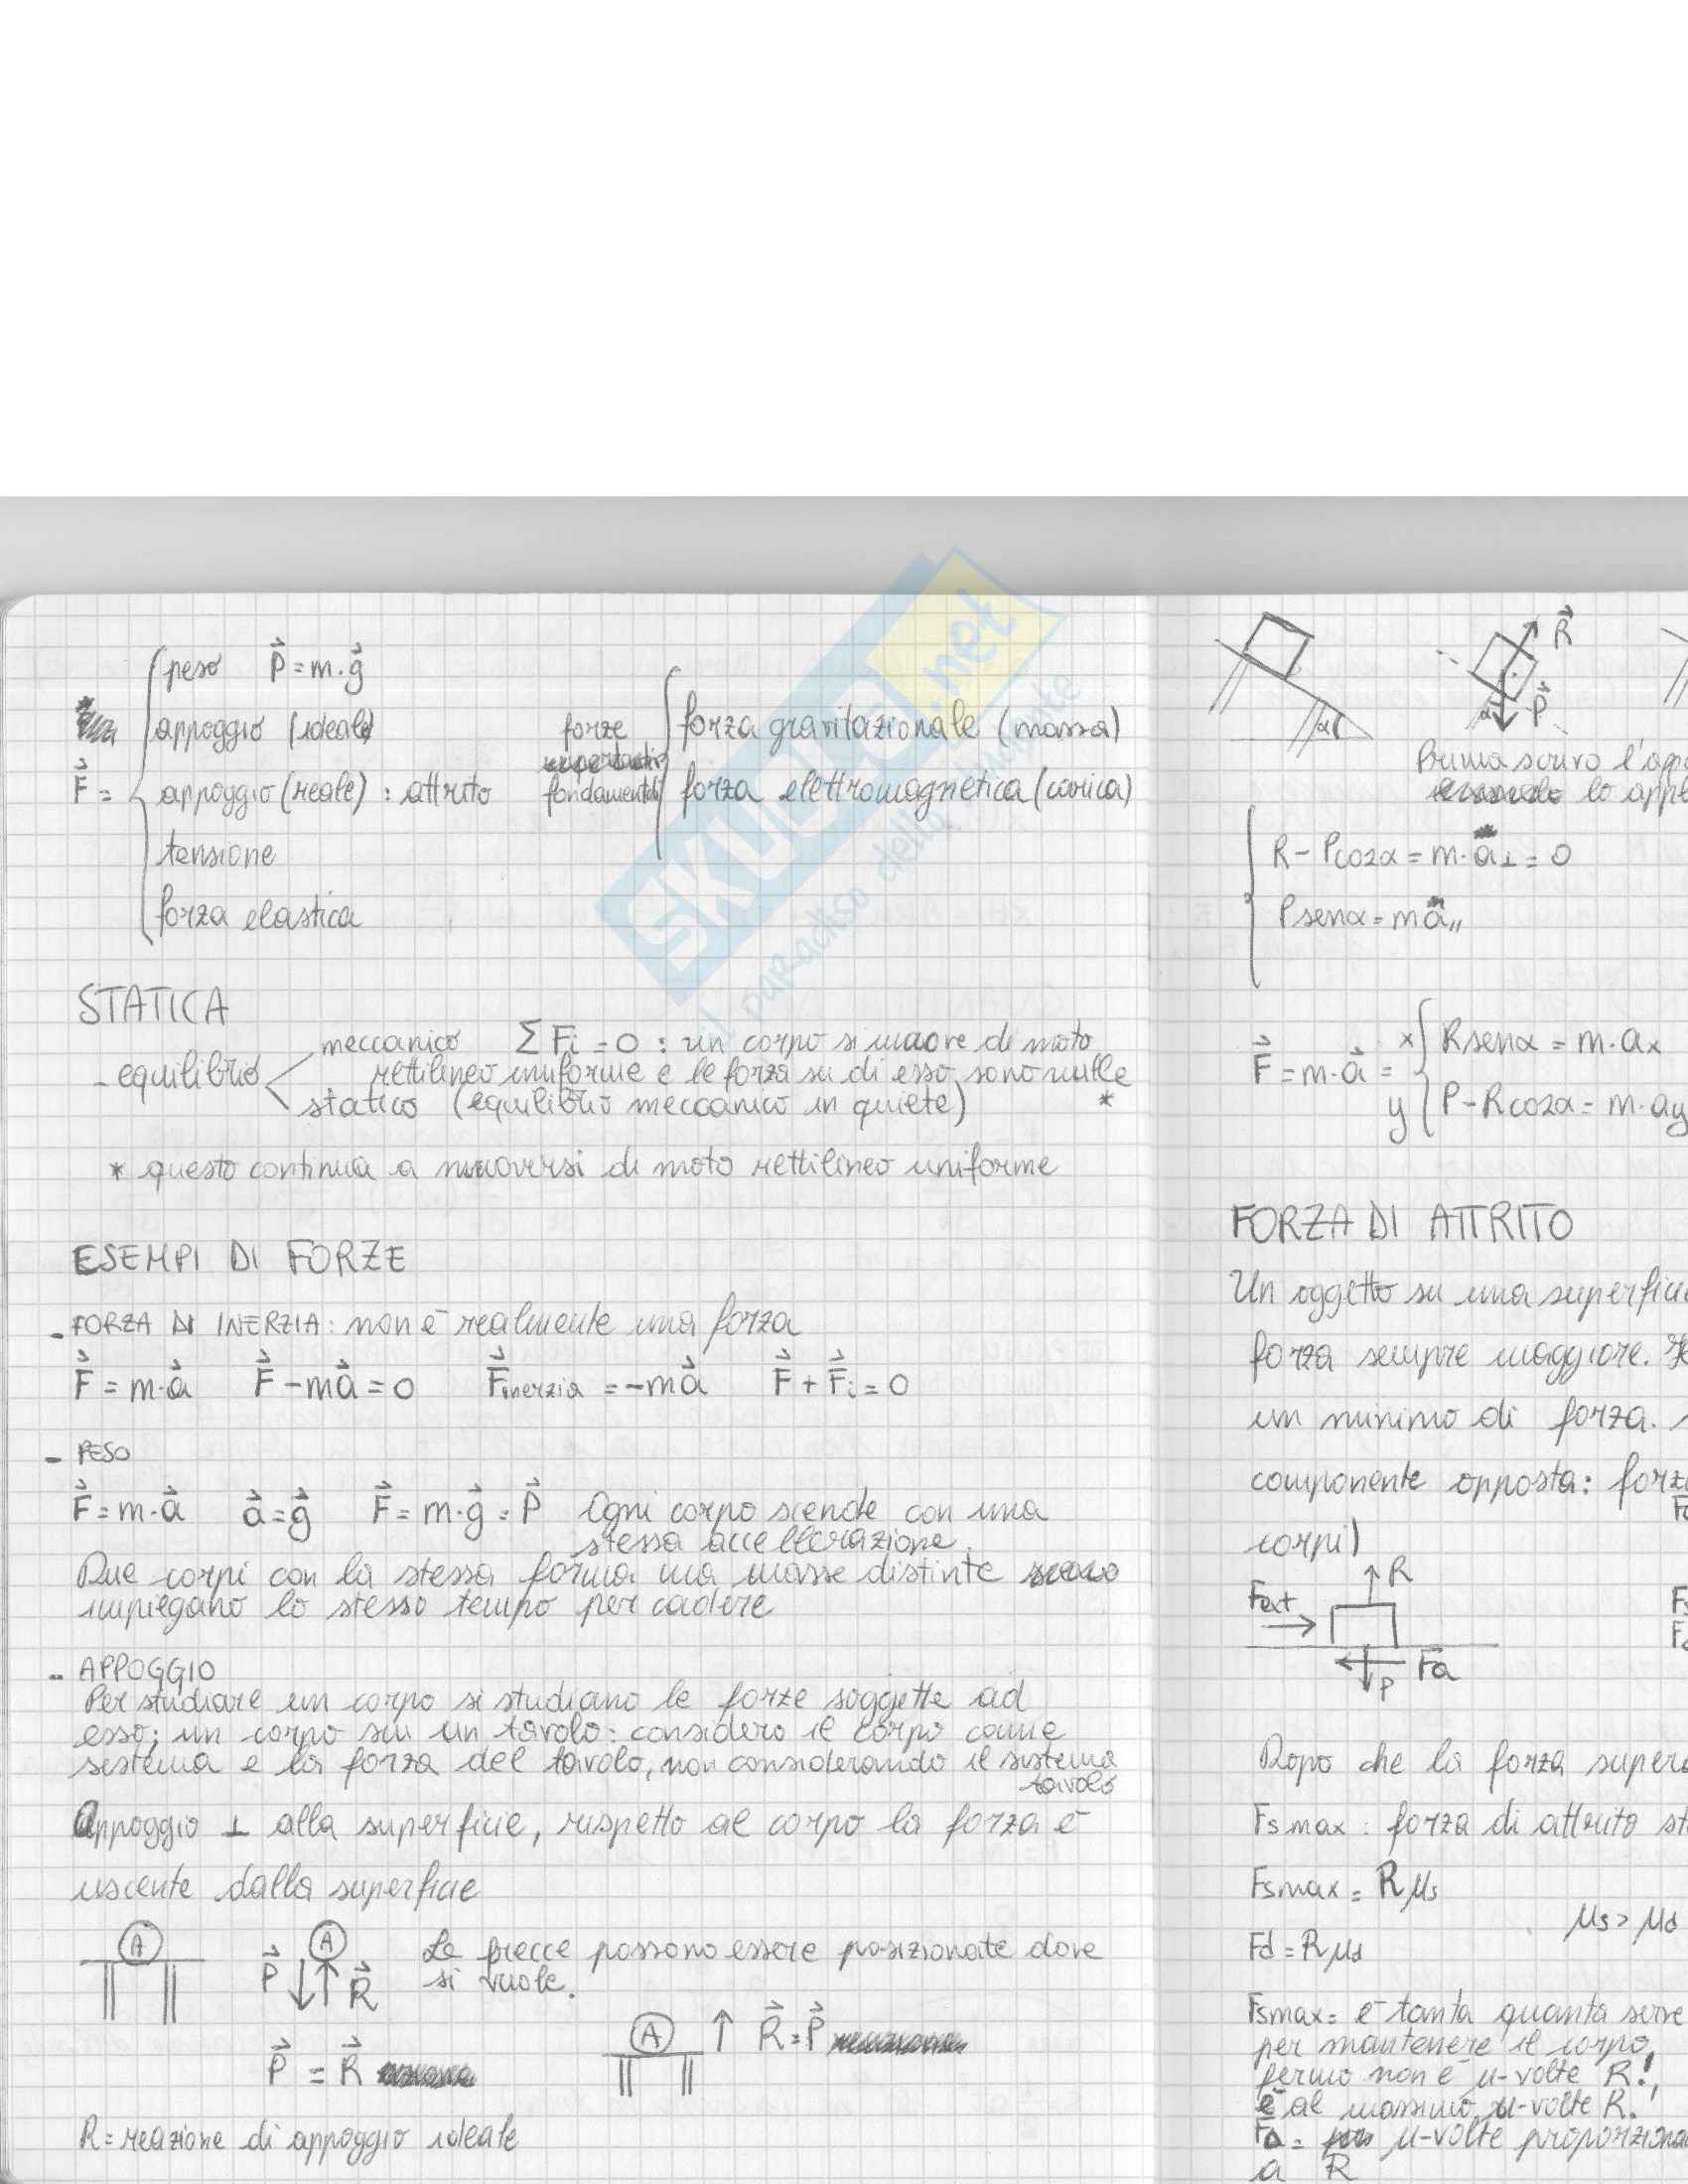 peso P = m·g
appoggio (ideale)
F = appoggio (reale) : attrito
tensione
forza elastica
forze
fondamentali
forza gravitazionale (massa)
forza elettromagnetica (carica)
SKUOLA.net
il paradiso dello studente
STATICA
- equilibrio
meccanico Σ Fi = 0 : un corpo si muove di moto
rettilineo uniforme e le forza su di esso sono nulle
statico (equilibrio meccanico in quiete) *
* questo continua a muoversi di moto rettilineo uniforme
ESEMPI DI FORZE
- FORZA DI INERZIA: non è realmente una forza
F = m·a F - ma = 0 Finerzia = -ma F + Fi = 0
- PESO
F = m·a a = g F = m·g = P Ogni corpo scende con una
stessa accellerazione.
Due corpi con la stessa forma ma masse distinte
impiegano lo stesso tempo per cadere
- APPOGGIO
Per studiare un corpo si studiano le forze soggette ad
esso; un corpo su un tavolo: considero il corpo come
sistema e la forza del tavolo, non considerando il sistema
tavolo
Appoggio ⊥ alla superficie, rispetto al corpo la forza è
uscente dalla superficie
A P A R Le frecce possono essere posizionate dove
si vuole.
P = R
A R = P
R = reazione di appoggio ideale
R
α α P
Prima scrivo l'app
lo appl
R - Pcosα = m·a⊥ = 0
Psenα = ma//
F = m·a =
x Rsenα = m·ax
y P - Rcosα = m·ay
FORZA DI ATTRITO
Un oggetto su una superficie
forza sempre maggiore.
un minimo di forza.
componente opposta: forza
corpi)
R
Fext
Fa
P
Dopo che la forza supera
Fsmax : forza di attrito st
Fsmax = Rμs
μs > μd
Fd = Rμd
Fsmax = è tanta quanta serve
per mantenere il corpo
fermo non è μ-volte R!,
è al massimo μ-volte R.
Fa = μ-volte proporziona
a R